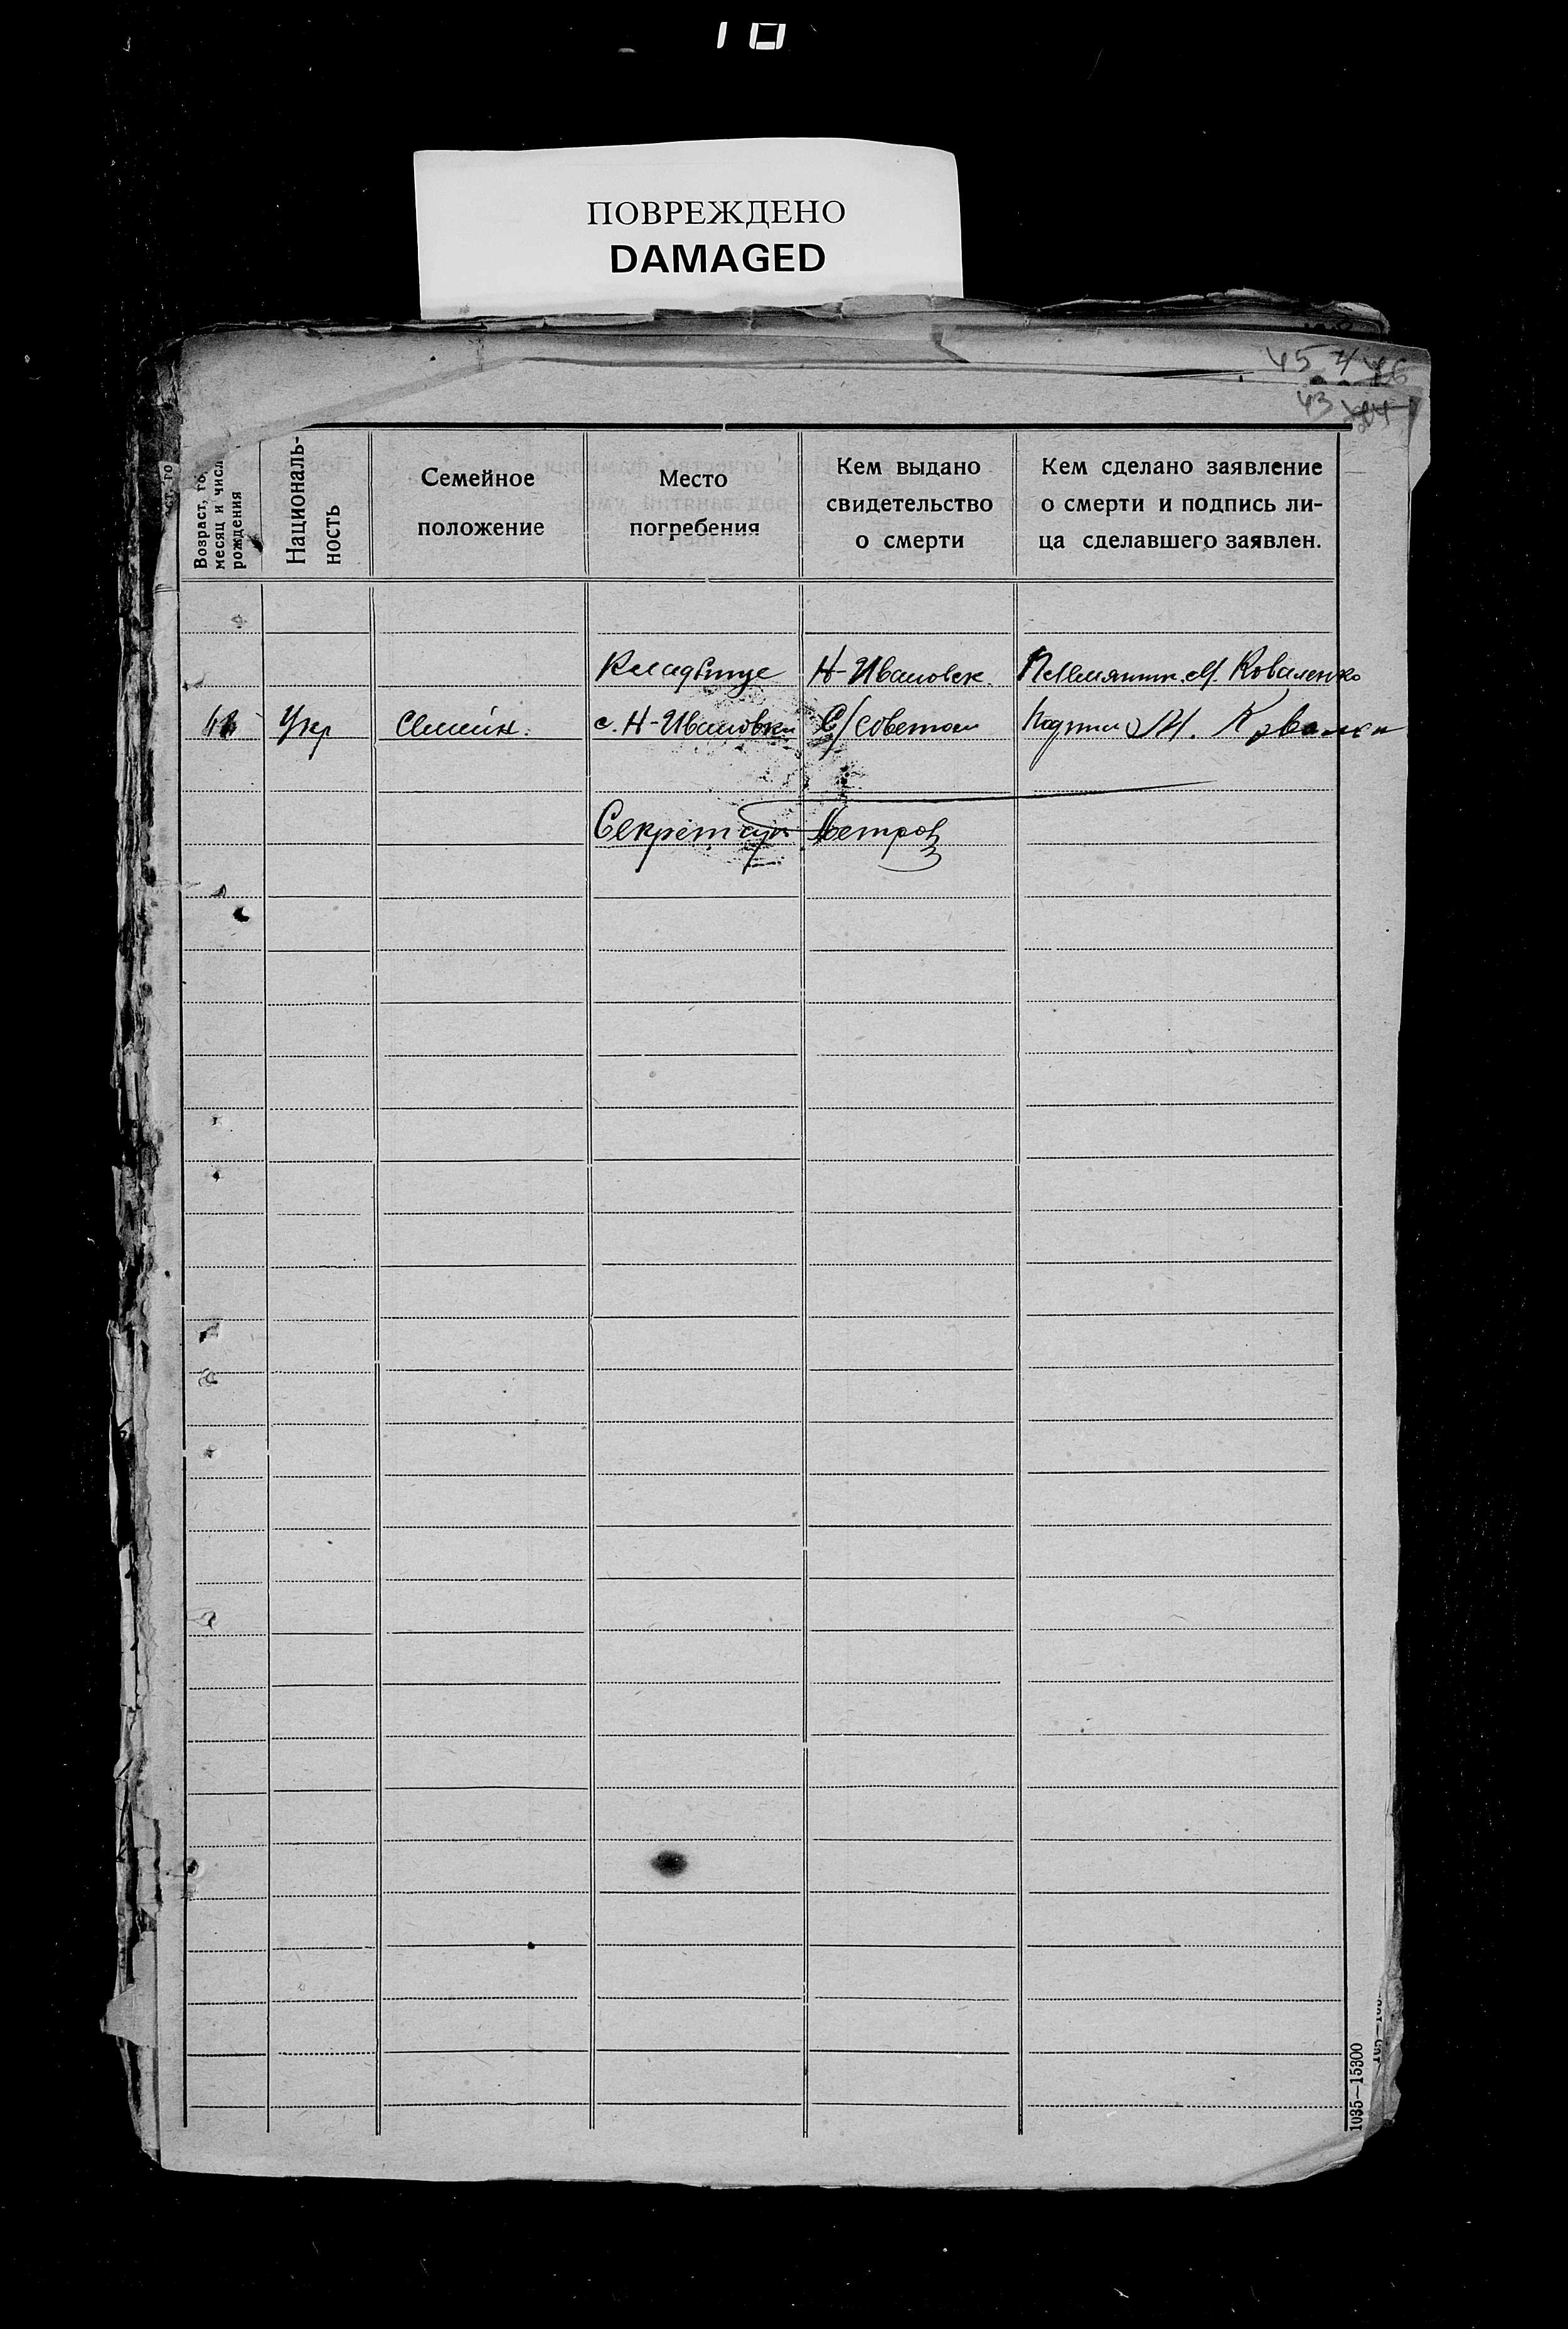 10
ПОВРЕЖДЕНО
DAMAGED
45 46
43
Возраст, го
месяц и числ
рождения
Националь-
ность
Семейное
положение
Место
погребения
Кем выдано
свидетельство
о смерти
Кем сделано заявление
о смерти и подпись ли-
ца сделавшего заявлен.
Кладбище Н-Ивановск. Племянник М. Коваленко
Укр Семейн. с. Н-Ивановки С/советом М. Ковален
Секретарь Петров
1035—15300